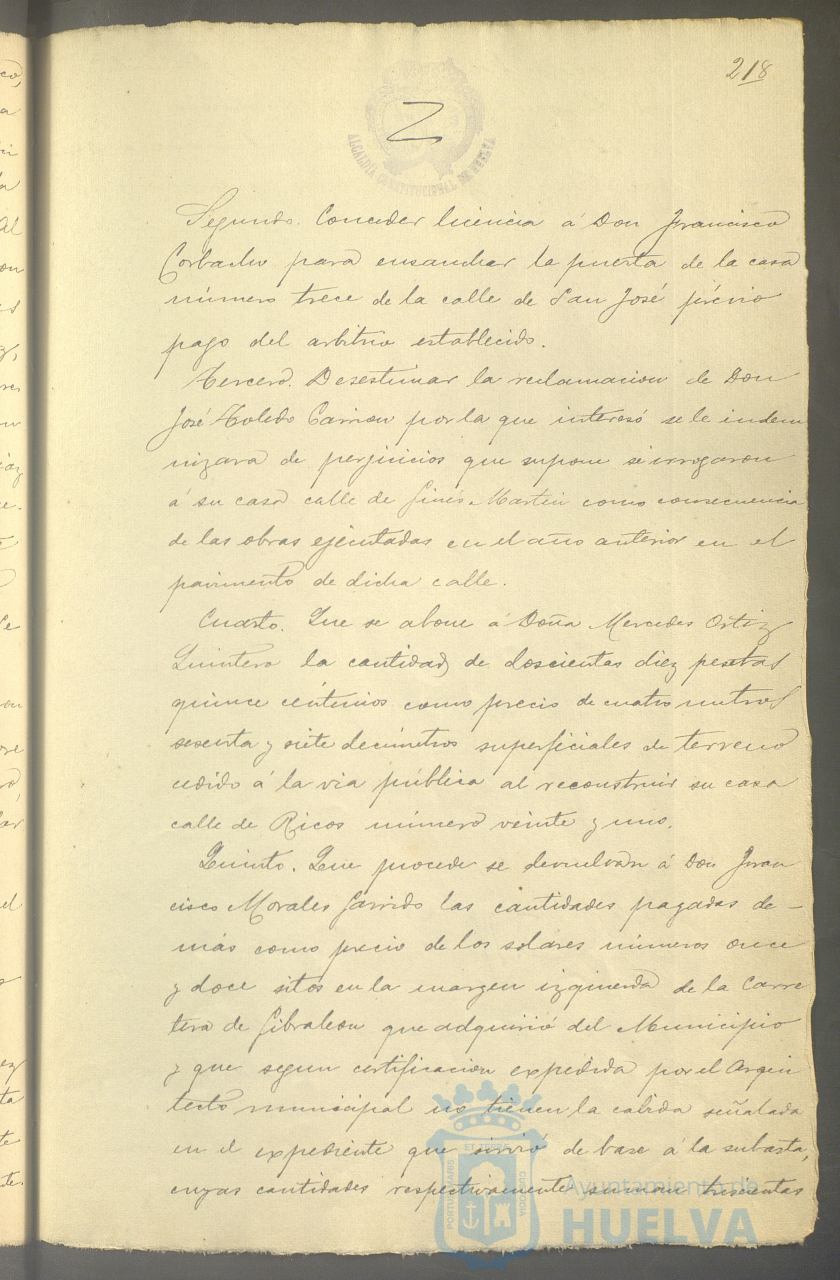 218
ALCALDÍA CONSTITUCIONAL DE HUELVA
Segundo. Conceder licencia á Don Francisco
Corbacho para ensanchar la puerta de la casa
número trece de la calle de San José prévio
pago del arbitrio establecido.
Tercero. Desestimar la reclamacion de Don
José Toledo Carrion por la que interesó se le indem
nizara de perjuicios que supone se irrogaron
á su casa calle de Ginés Martin como consecuencia
de las obras ejecutadas en el año anterior en el
pavimento de dicha calle.
Cuarto. Que se abone á Doña Mercedes Ortiz
Quintero la cantidad de doscientas diez pesetas
quince céntimos como precio de cuatro metros
sesenta y siete decímetros superficiales de terreno
cedido á la via pública al reconstruir su casa
calle de Ricos número veinte y uno.
Quinto. Que procede se devuelvan á Don Fran
cisco Morales Garrido las cantidades pagadas de-
más como precio de los solares números once
y doce sitos en la margen izquierda de la Carre
tera de Gibraleon que adquirió del Municipio
y que segun certificacion expedida por el Arqui
tecto municipal no tienen la cabida señalada
en el expediente que sirvió de base á la subasta,
cuyas cantidades respectivamente suman trescientas
PORTUS MARIS ET TERRE CUSTODIA
Ayuntamiento de
HUELVA